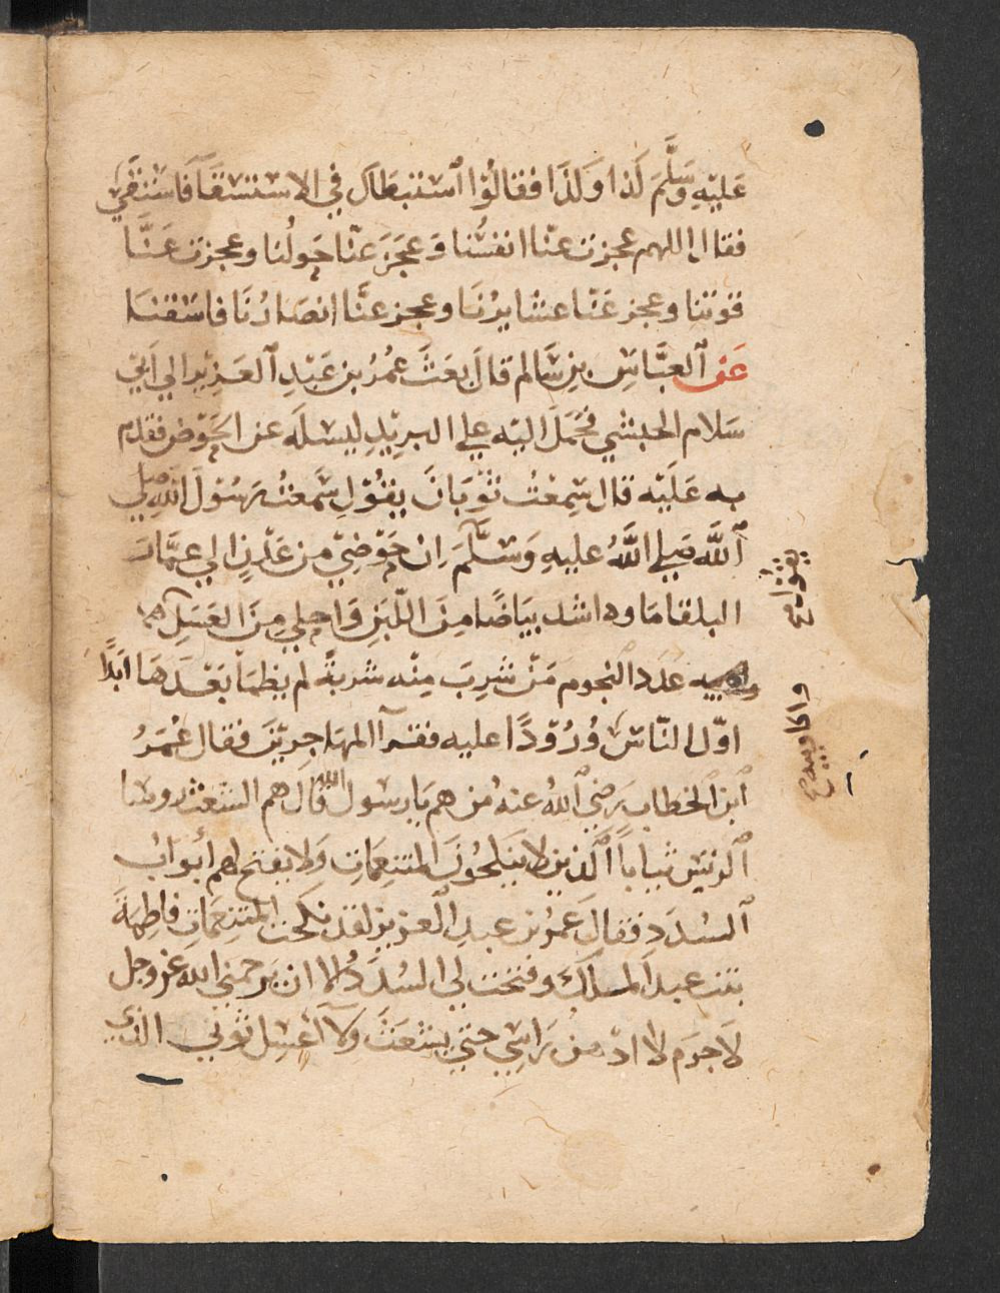 عَليْهِ وَسَلَّمَ كَذا وَكذَا فقالُوْا اسْتبطَاك في الاسْتسْقَآءَ فَاسْتسْقَي
فقال اللهم عجزت عنّا انفسُنا وَعَجَزَ عنّا حَولُنا وعجزت عَنَّا
قوتنا وعجز عَنّا عشايرُنَا وعجز عنَّا انصَارُنَا فاسْقنَا
عَن العبَّاسِ بنِ سَالم قالَ بعَثَ عُمرُ بن عَبْدِ العَزِيْز الي اَبيْ
سَلام الحبشي فحُمَلَ اليْه علي البرِيْدِ ليسلَه عن الحَوْض فقدم
به عَلَيْه قال سَمِعْتُ ثَوْبَانَ يقُوْلُ سَمعْتُ رَسُوْلَ اللهِ صلي
اللَّه صَلي اللَّهُ عليهِ وَسَلَّمَ ان حَوْضِيْ من عَدْنِ الي عمَّان
البلقا مَاوه اشد بيَاضًا مِنَ اللّبَنِ وَاحلي مِنَ العَسَلِ
عَدَد النجوم مَنْ شَرِبَ مِنْه شربةً لم يظمَا بَعْدَهَا ابَدًا
اوّل النّاسْ وُرُوْدًا عليه فقرآ المهَاجرِيْنَ فقال عُمَرُ
ابن الخطاب رَضيَ اللهُ عنهُ من هم يَا رسول الله قال هم الشعث روسا
الدنسْ ثيابًا الَّذين لا يَنكِحُونَ المتنعِمَات وَلا يفتح لهم أبوابُ
السُدَد فقالَ عَمر بن عبدِ العزيز لقد نكحتُ المتنعِمَات فاطِمَةَ
بنت عبدَ الملكَ وفتحت لي السُدَدُ الا ان يَرحمني الله عز وجل
لَا جرَم لا ادّهن رَاسِي حتي يشعَثَ وَلآ أغسِل ثوبي الذي
يقول
واكاويبه